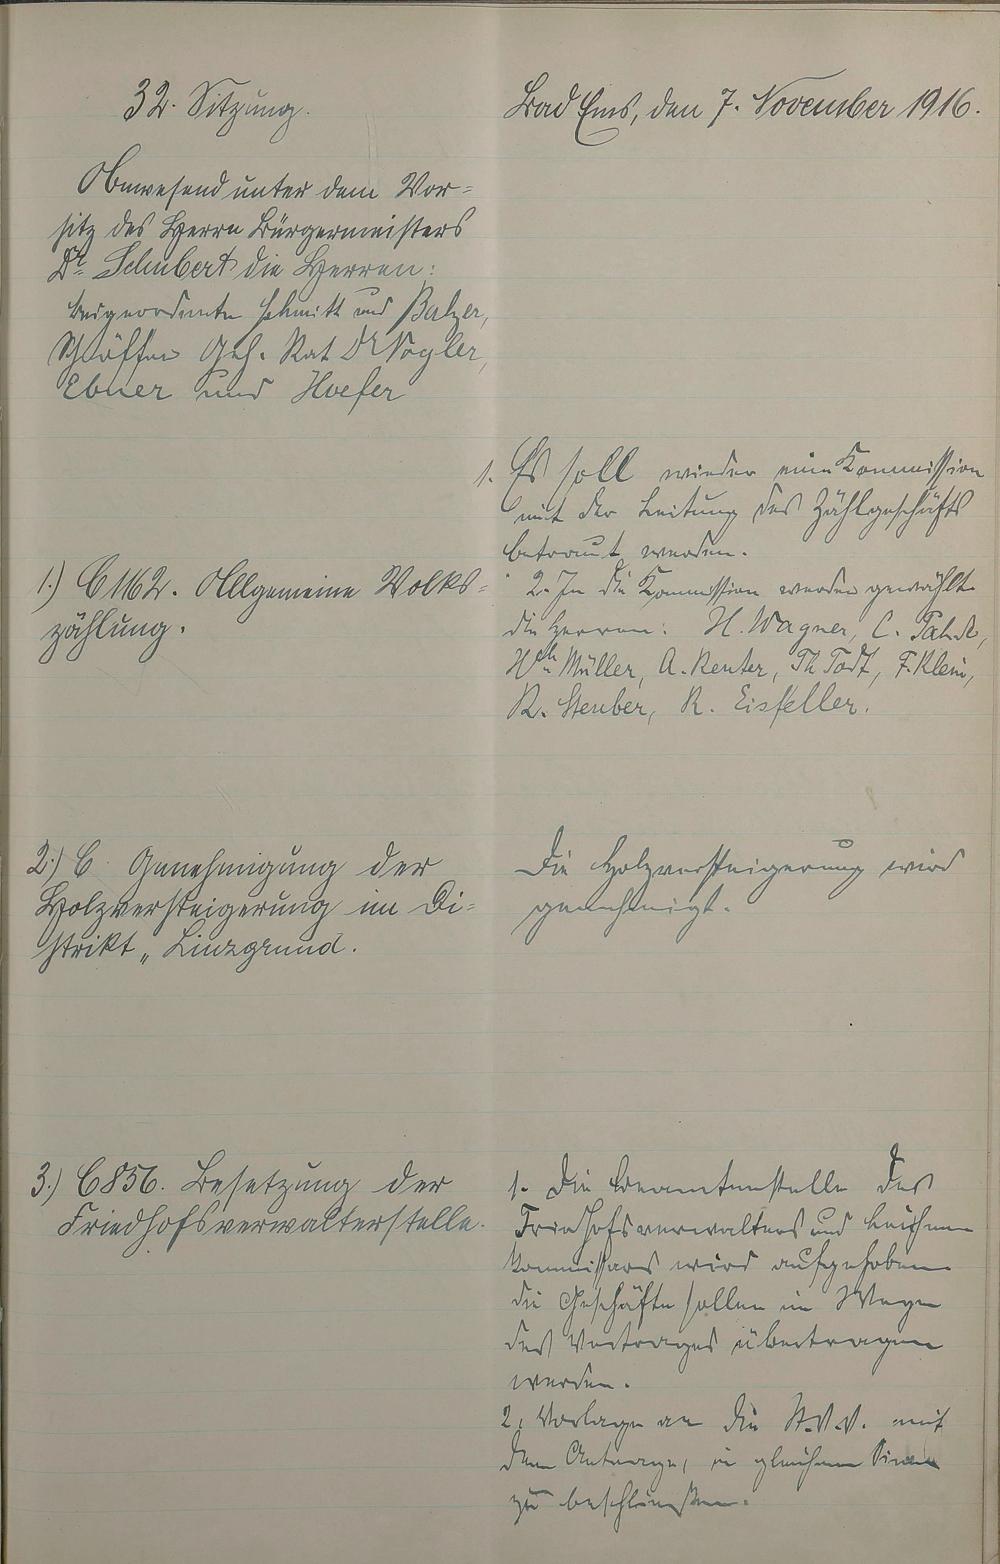 32. Sitzung.
Bad Ems, den 7. November 1916.
Anwesend unter dem Vor-
sitz des Herrn Bürgermeisters
Dr. Schubert die Herren:
Beigeordnete Schmitt und Balzer,
Schöffen Geh. Rat Dr Vogler,
Ebner und Hoefer
1.) C 1162. Allgemeine Volks-
zählung.
1. Es soll wieder eine Kommission
mit der Leitung des Zählgeschäfts
betraut werden.
2. In die Kommission werden gewählt
die Herren: H. Wagner, C.
Wh. Müller, A. Reuter, Th. Todt, F. Klein,
R. Steuber, R. Eisfeller.
2.) C Genehmigung der
Holzversteigerung im Di-
strikt „Linzgrund.
Die Holzversteigerung wird
genehmigt.
3.) C 856. Besetzung der
Friedhofsverwalterstelle.
1. Die Beamtenstelle des
Friedhofsverwalters und Leichen
kommissars wird aufgehoben
die Geschäfte sollen im Wege
des Vertrages übertragen
werden.
2. Vorlage an die St.V.V. mit
dem Antrage, in gleichem Sinne
zu beschließen.